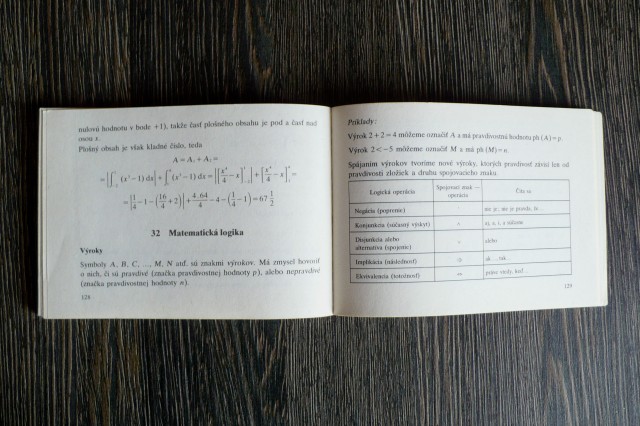 nulovú hodnotu v bode +1), takže časť plošného obsahu je pod a časť nad
osou x.
Plošný obsah je však kladné číslo, teda
A = A₁ + A₂ =
(x³ − 1) dx + (x³ − 1) dx
32 Matematická logika
Výroky
Symboly A, B, C, ..., M, N atď. sú znakmi výrokov. Má zmysel hovoriť
o nich, či sú pravdivé (značka pravdivostnej hodnoty p), alebo nepravdivé
(značka pravdivostnej hodnoty n).
128
Príklady:
Výrok 2 + 2 = 4 môžeme označiť A a má pravdivostnú hodnotu ph (A) = p.
Výrok 2 < −5 môžeme označiť M a má ph (M) = n.
Spájaním výrokov tvoríme nové výroky, ktorých pravdivosť závisí len od
pravdivosti zložiek a druhu spojovacieho znaku.
Logická operácia
Spojovací znak —
operácia
Číta sa
Negácia (popretie)
nie je; nie je pravda, že ...
Konjunkcia (súčasný výskyt)
aj, a
Disjunkcia alebo
alternatíva (spojenie)
alebo
Implikácia (následnosť)
ak ..., tak ...
Ekvivalencia (totožnosť)
práve vtedy, keď ...
129